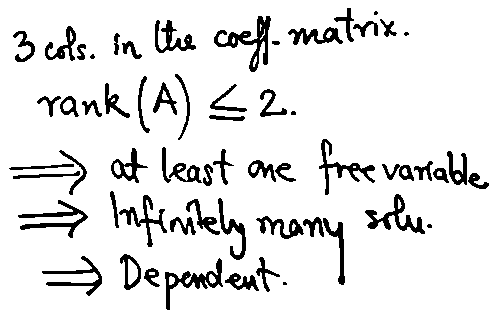 3 cols. in the coeff. matrix.
rank(A) ≤ 2.
⟹ at least one free variable
⟹ Infinitely many solu.
⟹ Dependent.